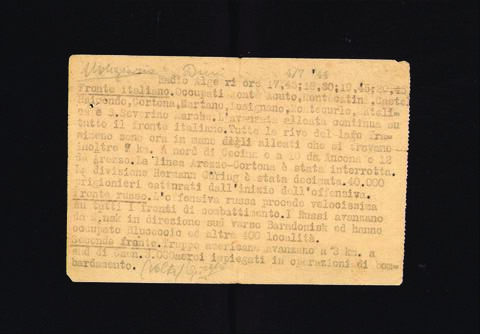 4/7 '44
Radio Algeri ore 17,45;18,30;19,45;20,45
Fronte italiano. Occupati Monte Acuto, Montecatini, Castel
Raimondo, Cortona, Sartano,
e S. Severino Marche. L'avanzata alleata continua su
tutto il fronte italiano. Tutte le rive del lago Tra-
simeno sono ora in mano degli alleati che si trovano
inoltre 7 km. A nord di Cecina e a 10 da Ancona e 12
da Arezzo. La linea Arezzo-Cortona è stata interrotta.
La divisione Hermann Göring è stata decimata. 40.000
prigionieri catturati dall'inizio dell'offensiva.
Fronte russo. L'offensiva russa procede velocissima
su tutti i fronti di combattimento. I Russi avanzano
da Minsk in direzione sud verso Baradonisk ed hanno
occupato ed altre 400 località.
Secondo fronte. Truppe americane avanzano a 3 km. a
sud di Caen. 3.000 aerei impiegati in operazioni di bom-
bardamento.